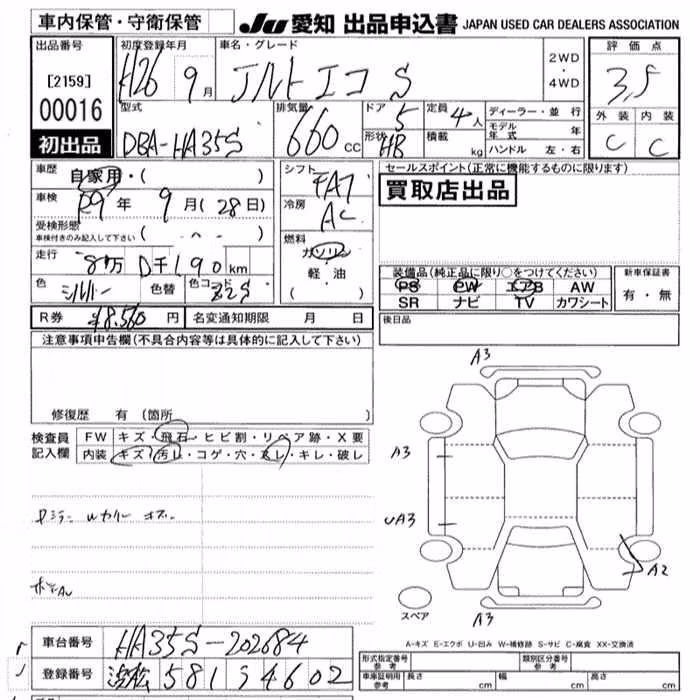 車内保管・守衛保管
JU 愛知 出品申込書 JAPAN USED CAR DEALERS ASSOCIATION
出品番号 初度登録年月 車名・グレード 評価点
[2159] H26 9月 アルトエコ S 2WD・4WD 3.5
00016 型式 排気量 ドア 定員 ディーラー・並行 外装 内装
DBA-HA35S 660 CC 5 4人 モデル年式 年 C C
初出品 形状 HB 積載 kg ハンドル 左・右
車歴 自家用・( ) シフト FA7 セールスポイント(正常に機能するものに限ります)
車検 R9年 9月(28日) 冷房 AC 買取店出品
受検形態 車検付きのみ記入して下さい ( )
燃料 ガソリン 軽・油 ( )
走行 8万 0千190km 装備品(純正品に限り○をつけてください) 新車保証書
色 シルバー 色替 色コード Z2S PS PW エアB AW 有・無
SR ナビ TV カワシート
R券 ¥8,560円 名変通知期限 月 日 後日品
注意事項申告欄(不具合内容等は具体的に記入して下さい)
修復歴 有 (箇所 )
検査員記入欄 FW キズ・飛石・ヒビ割・リペア跡・X要
内装 キズ・汚レ・コゲ・穴・スレ・キレ・破レ
A3
A3
UA3
A2
スペア
A3
A-キズ E-エクボ U-凹み W-補修跡 S-サビ C-腐食 XX-交換済
車台番号 HA35S-202684
登録番号 浜松 581 5 4602
形式指定番号 参考 類別区分番号 参考
車庫証明用 参考 長さ cm 幅 cm 高さ cm